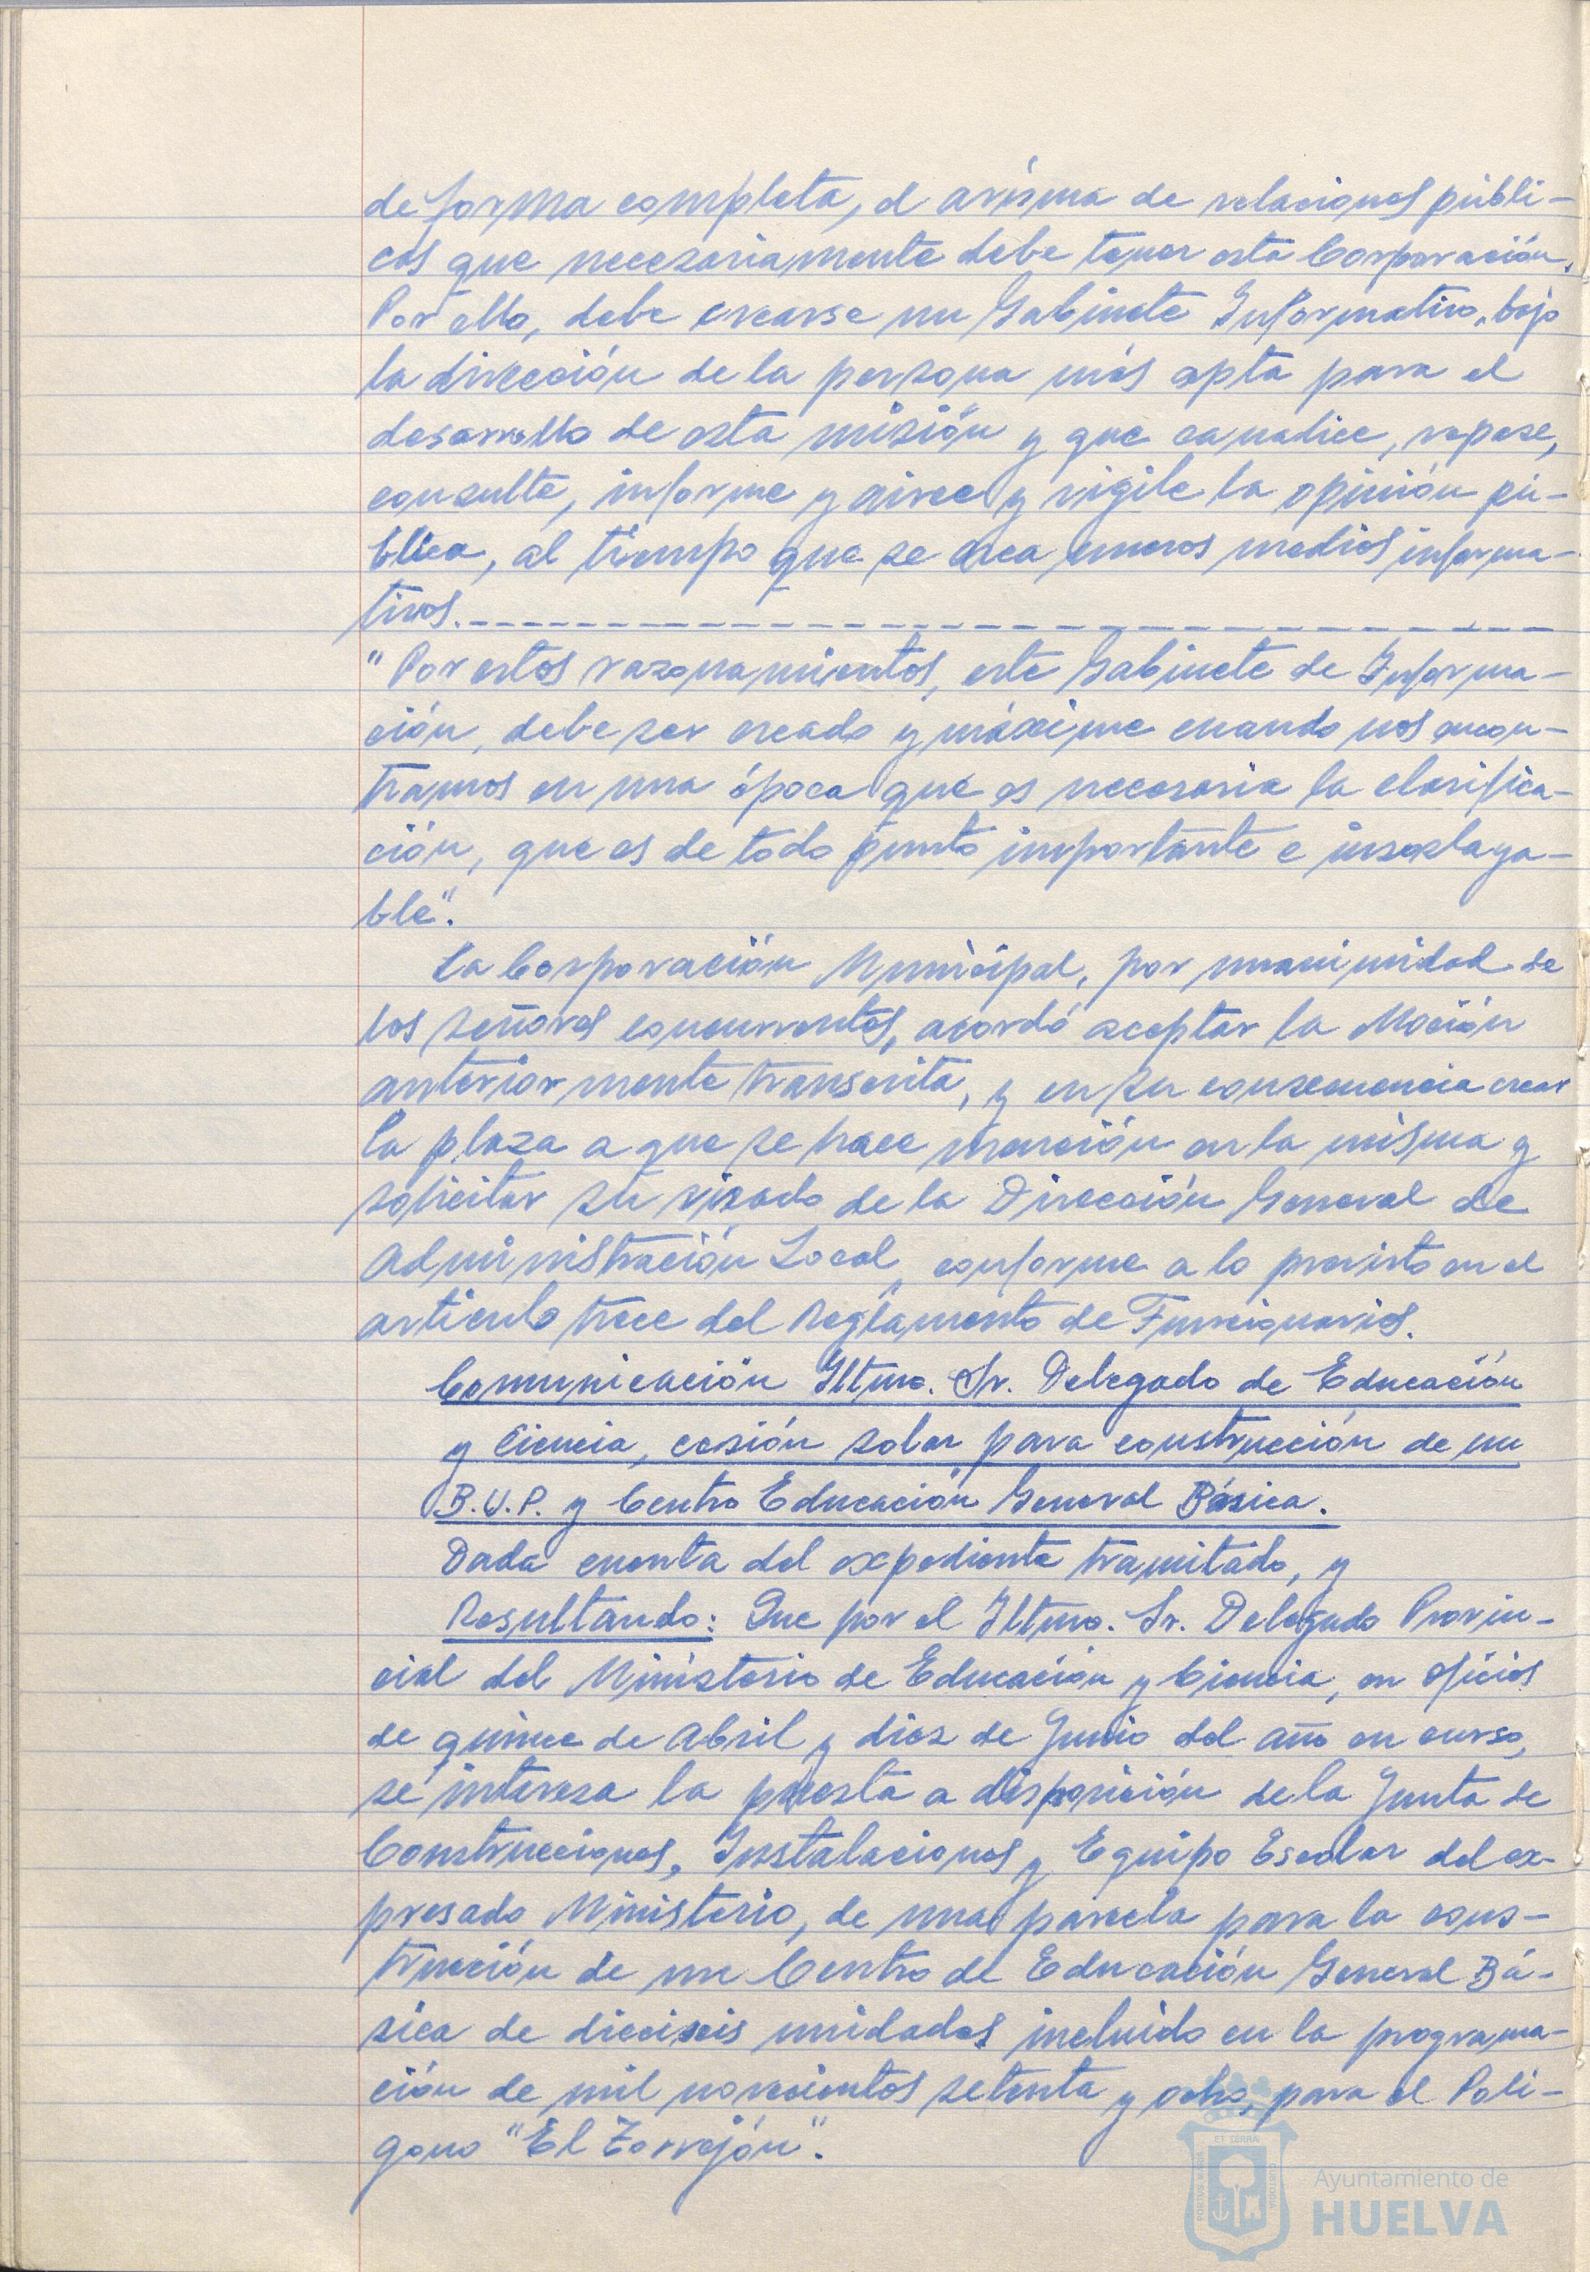 de forma completa, el arisma de relaciones públi-
cas que necesariamente debe tener esta Corporación.
Por ello, debe crearse un Gabinete Informativo, bajo
la dirección de la persona más apta para el
desarrollo de esta misión y que canalice, repase,
consulte, informe y airee y vigile la opinión pú-
blica, al tiempo que se crea nuevos medios informa-
tivos.
"Por estos razonamientos, este Gabinete de Informa-
ción, debe ser creado y máxime cuando nos encon-
tramos en una época que es necesaria la clarifica-
ción, que es de todo punto importante e insoslaya-
ble".
La Corporación Municipal, por unanimidad de
los señores concurrentes, acordó aceptar la Moción
anteriormente transcrita, y en su consecuencia crear
la plaza a que se hace mención en la misma y
solicitar su visado de la Dirección General de
Administración Local, conforme a lo previsto en el
artículo trece del Reglamento de Funcionarios.
Comunicación Iltmo. Sr. Delegado de Educación
y Ciencia, cesión solar para construcción de un
B.U.P. y Centro Educación General Básica.
Dada cuenta del expediente tramitado, y
Resultando: Que por el Iltmo. Sr. Delegado Provin-
cial del Ministerio de Educación y Ciencia, en oficios
de quince de Abril y diez de Junio del año en curso,
se interesa la puesta a disposición de la Junta de
Construcciones, Instalaciones y Equipo Escolar del ex-
presado Ministerio, de una parcela para la cons-
trucción de un Centro de Educación General Bá-
sica de dieciseis unidades incluido en la programa-
ción de mil novecientos setenta y ocho, para el Polí-
gono "El Torrejón".
Ayuntamiento de
HUELVA